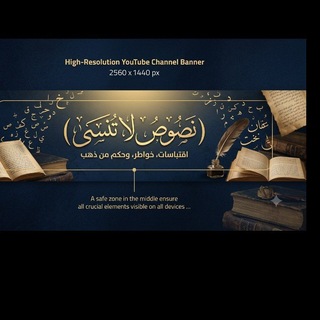 High-Resolution YouTube Channel Banner
2560 x 1440 px
(نصوص لا تنسى)
اقتباسات، خواطر، وحكم من ذهب
A safe zone in the middle ensure
all crucial elements visible on all devices ...